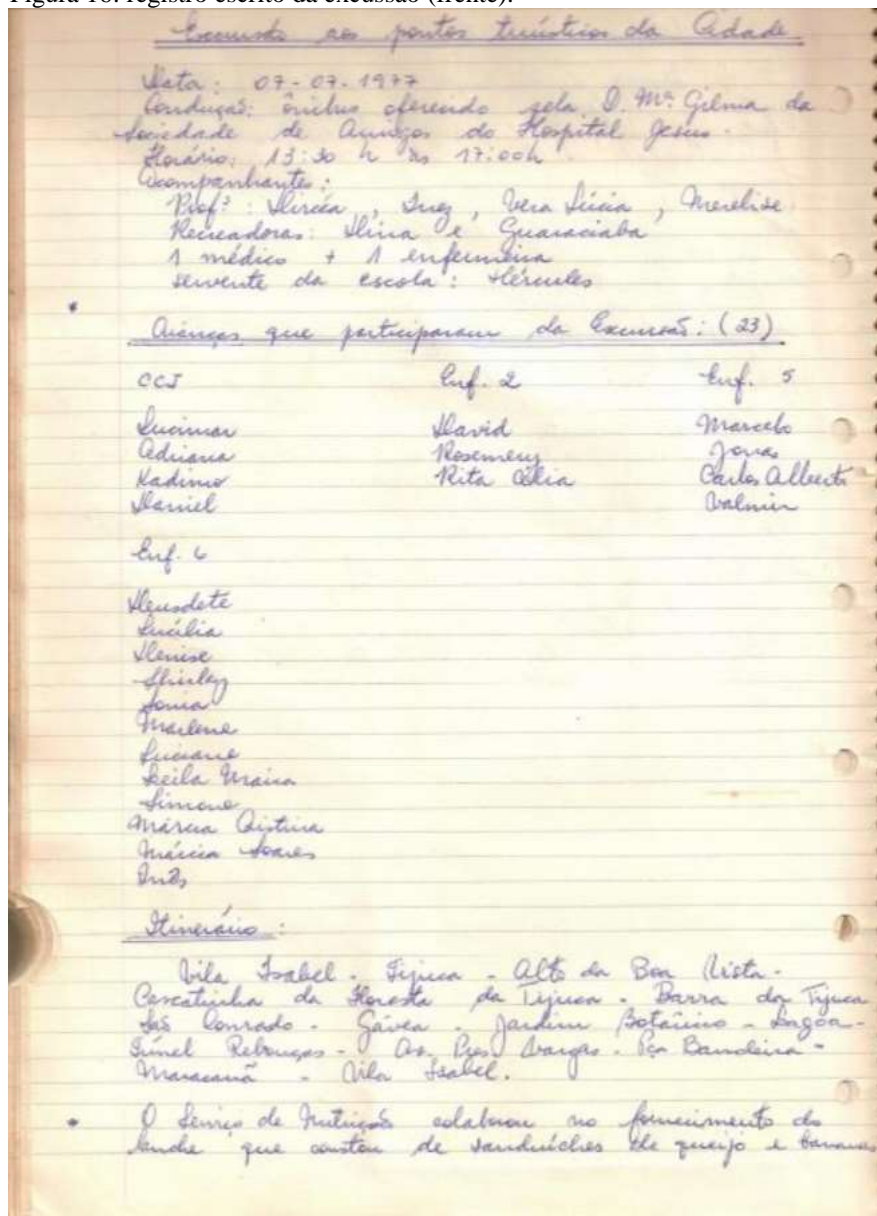 Figura 18: registro escrito da excussão (frente).
Excursão aos pontos turísticos da Cidade
Data: 07-07-1977
Condução: ônibus oferecido pela D. Mª Gilma da
Sociedade de Amigos do Hospital Jesus.
Horário: 13:30 h às 17:00h
Acompanhantes:
Profªs: Dircéa, Inez, Vera Lúcia, Merelise
Recreadoras: Dina e Guaraciaba
1 médico + 1 enfermeira
servente da escola: Hércules
Crianças que participaram da Excursão: (23)
CCJ Enf. 2 Enf. 5
Lucimar David Marcelo
Adriana Rosemery Jonas
Kadimo Rita Célia Carlos Alberto
Daniel Valmir
Enf. 6
Deusdete
Lucília
Denise
Shirley
Sonia
Marlene
Luciane
Leila Maria
Simone
Márcia Cristina
Márcia Soares
Inês
Itinerário:
Vila Isabel - Tijuca - Alto da Boa Vista -
Cascatinha da Floresta da Tijuca - Barra da Tijuca
São Conrado - Gávea - Jardim Botânico - Lagoa -
Túnel Rebouças - Av. Pres. Vargas - Pça Bandeira -
Maracanã - Vila Isabel.
O Serviço de Nutrição colaborou no fornecimento do
lanche que constou de sanduíches de queijo e bananas